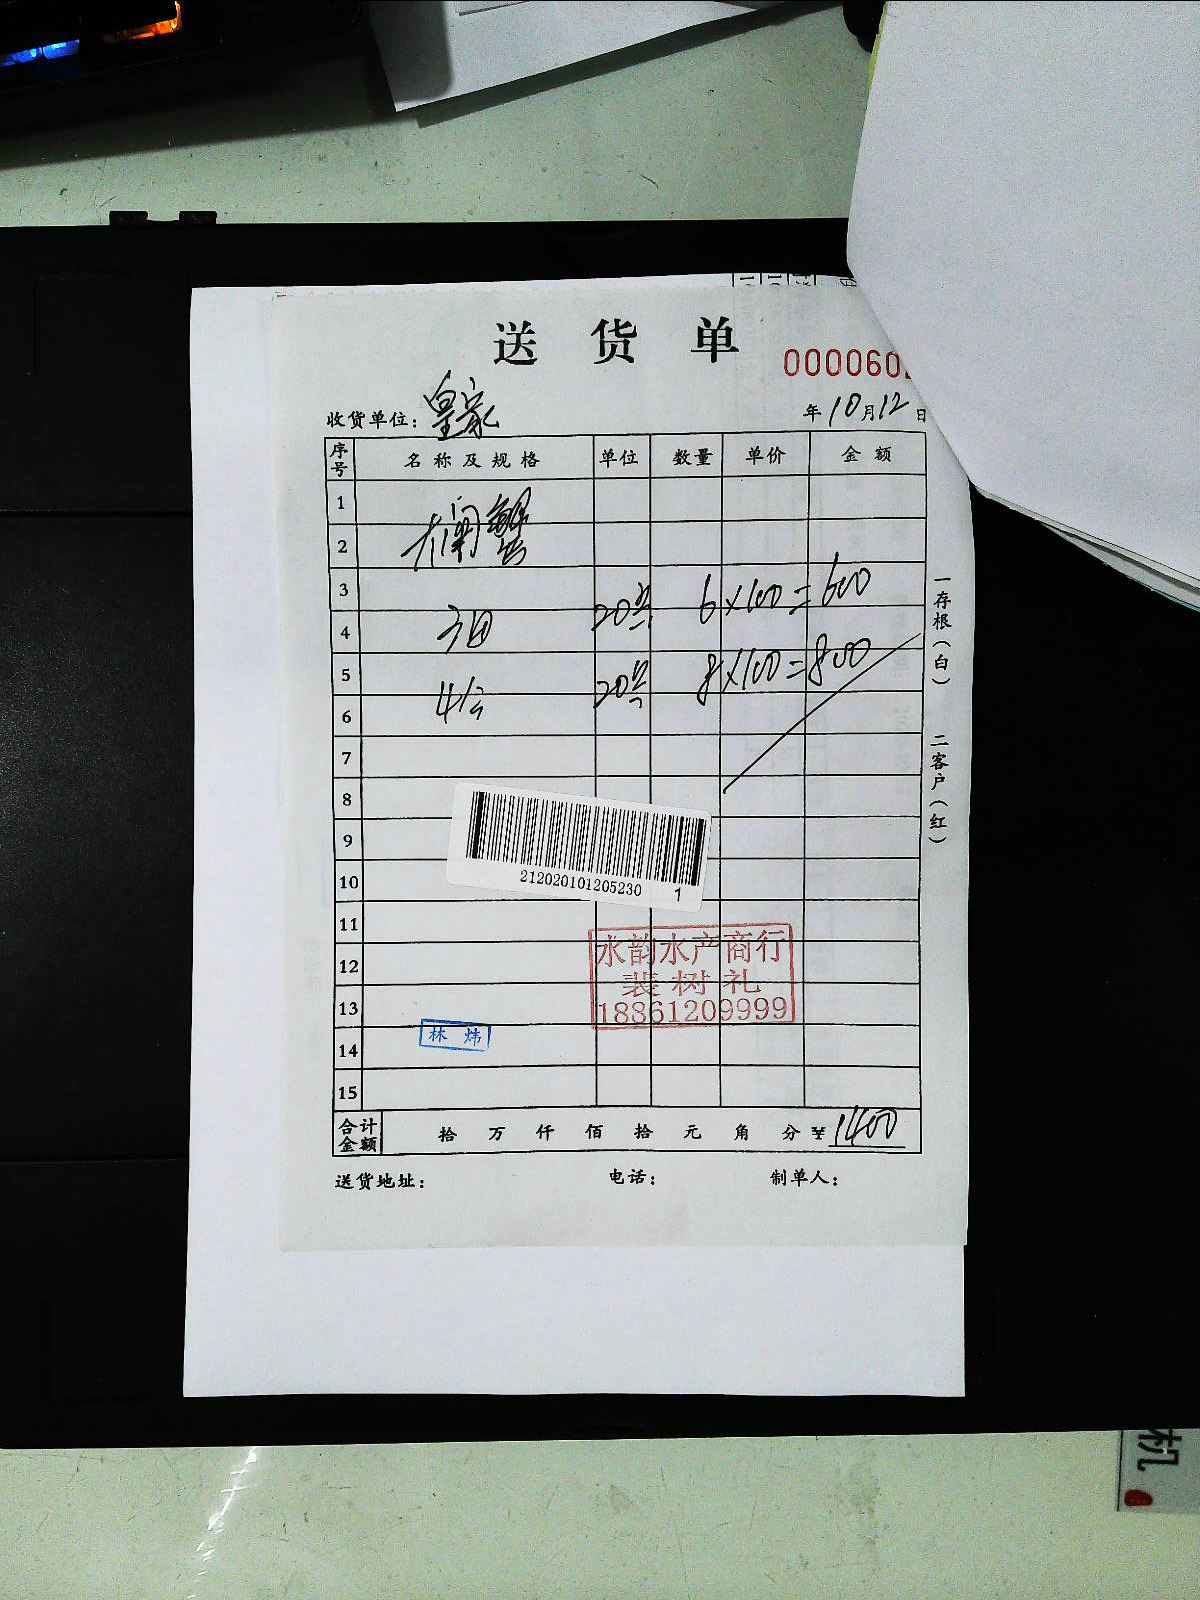 送货单
000060
收货单位：皇家
年10月12日
序号 名称及规格 单位 数量 单价 金额
1
大闸蟹
2
3
20只 6×100=600
4
5
20只 8×100=800
6
7
8
9
10
11
12
13
14
15
212020101205230 1
水韵水产商行
裴树礼
18861209999
林炜
合计金额 拾万仟佰拾元角分 ¥1400
送货地址： 电话： 制单人：
一存根（白） 二客户（红）
机